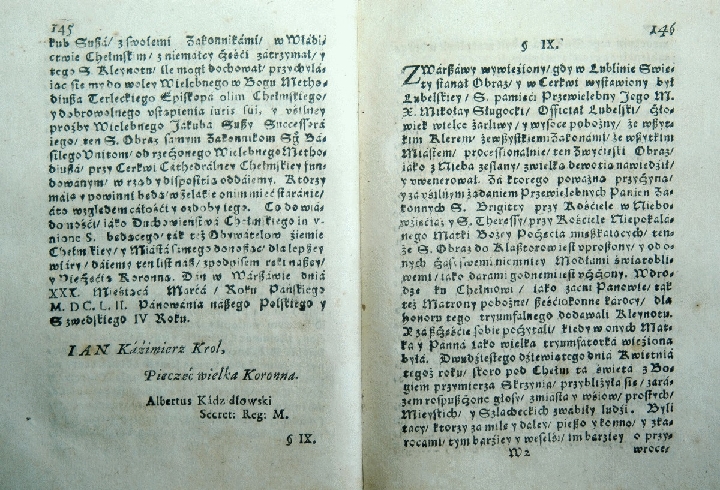 145
kub Sußá/ z swoiemi Zakonnikámi/ w Włády-
ctwie Chełmskim/ z niemáłey części zátrzymał/ y
tego S. Kleynotu/ ile mogł dochował/ przychyla-
iąc się my do woley Wielebnego w Bogu Metho-
diußá Terleckiego Episkopá olim Chełmskiego/
y dobrowolnego vstąpienia iuris sui, y vśilney
prozby Wielebnego Jakubá Sußy Successorá
iego/ ten S. Obraz sámym Zakonnikom S. Bá-
silego Vnitom/ ob rzeczonego Wielebnego Metho-
diußá/ przy Cerkwi Cáthedrálney Chełmskiey fun-
dowánym/ w rząd y disposicią oddáiemy. Ktorzy
máią y powinni będą/ wßelákie o nim mieć stáránie/
áto względem cáłośći/ y ozdoby iego. Co do wia-
domośći/ iáko Duchowieństwá Chełmskiego in v-
nione S. będącego/ ták też Obywátelow źiemie
Chełmskiey/ y Miástá sámego donosząc/ dla lepßey
wiáry/ dáiemy ten list náß/ z podpisem ręki náßey/
y Pieczęćią Koronną. Dan w Wárßáwie dniá
XXX. Mieśiącá Márcá/ Roku Páńskiego
M. DC. LII. Pánowánia náßego Polskiego y
Szwedskiego IV Roku.
IAN Káźimierz Krol,
Pieczęć wielka Koronna.
Albertus Kádzidłowski
Secret: Reg: M.
§ IX.
146
§ IX.
Z Wárßáwy wywieźiony/ gdy w Lublinie Swię-
ty stánął Obraz/ y w Cerkwi wystáwiony był
Lubelskiey/ S. pámięci Przewielebny Jego M.
X. Mikołay Sługocki/ Officiał Lubelski/ czło-
wiek wielce żárliwy/ y wysoce pobożny/ ze wßyt-
kim Klerem/ ze wßystkiemi Zakonámi/ ze wßytkim
Miástem/ processionálnie/ ten Zwycięski Obraz/
iáko z Niebá zesłány/ zwielką dewotią náwiedził/
y vwenerował. Zá ktorego poważną przyczyną/
y zá vśilnym żądániem Przewielebnych Pánien Zá-
konnych S. Brigitty przy Kośćiele w Niebo-
wźięcia/ y S. Theressy/ przy Kośćiele Niepokálá-
nego Mátki Bożey Poczęcia mießkáiących/ ten-
że S. Obraz do Klasztorow iest vproßony/ y od o-
nych y czásy niemnieyßemi Modłámi świątobli-
wemi/ iáko dárámi godnemi iest vczczony. W dro-
dze ku Chełmowi/ iáko zacni Pánowie/ ták
też Mátrony pobożne/ ßeśćiokonne káročy/ dla
honoru tego tryumfálnego dodawáli Kleynotu.
X zá ßczęśćie sobie poczytáli/ kiedy w onych Mát-
ká y Pánná iáko wielka tryumfátorká wieźiona
byłá. Dwudźiestego dźiewiątego dniá Kwietniá
tegoż roku/ skoro pod Chełm tá święta z Bo-
giem przymierza Skrzyniá/ przybliżyłá się/ zá rá-
zem rozpußczone głosy/ z miástá y wśiow/ prostych/
Mieyskich/ y Szlácheckich zwabiły ludźi. Byli
tácy/ ktorzy zá milę y dáley/ pießo y konno/ y z ká-
rocámi/ tym bárźiey y weseléy/ im bárźiey o przy-
W2 wroce-